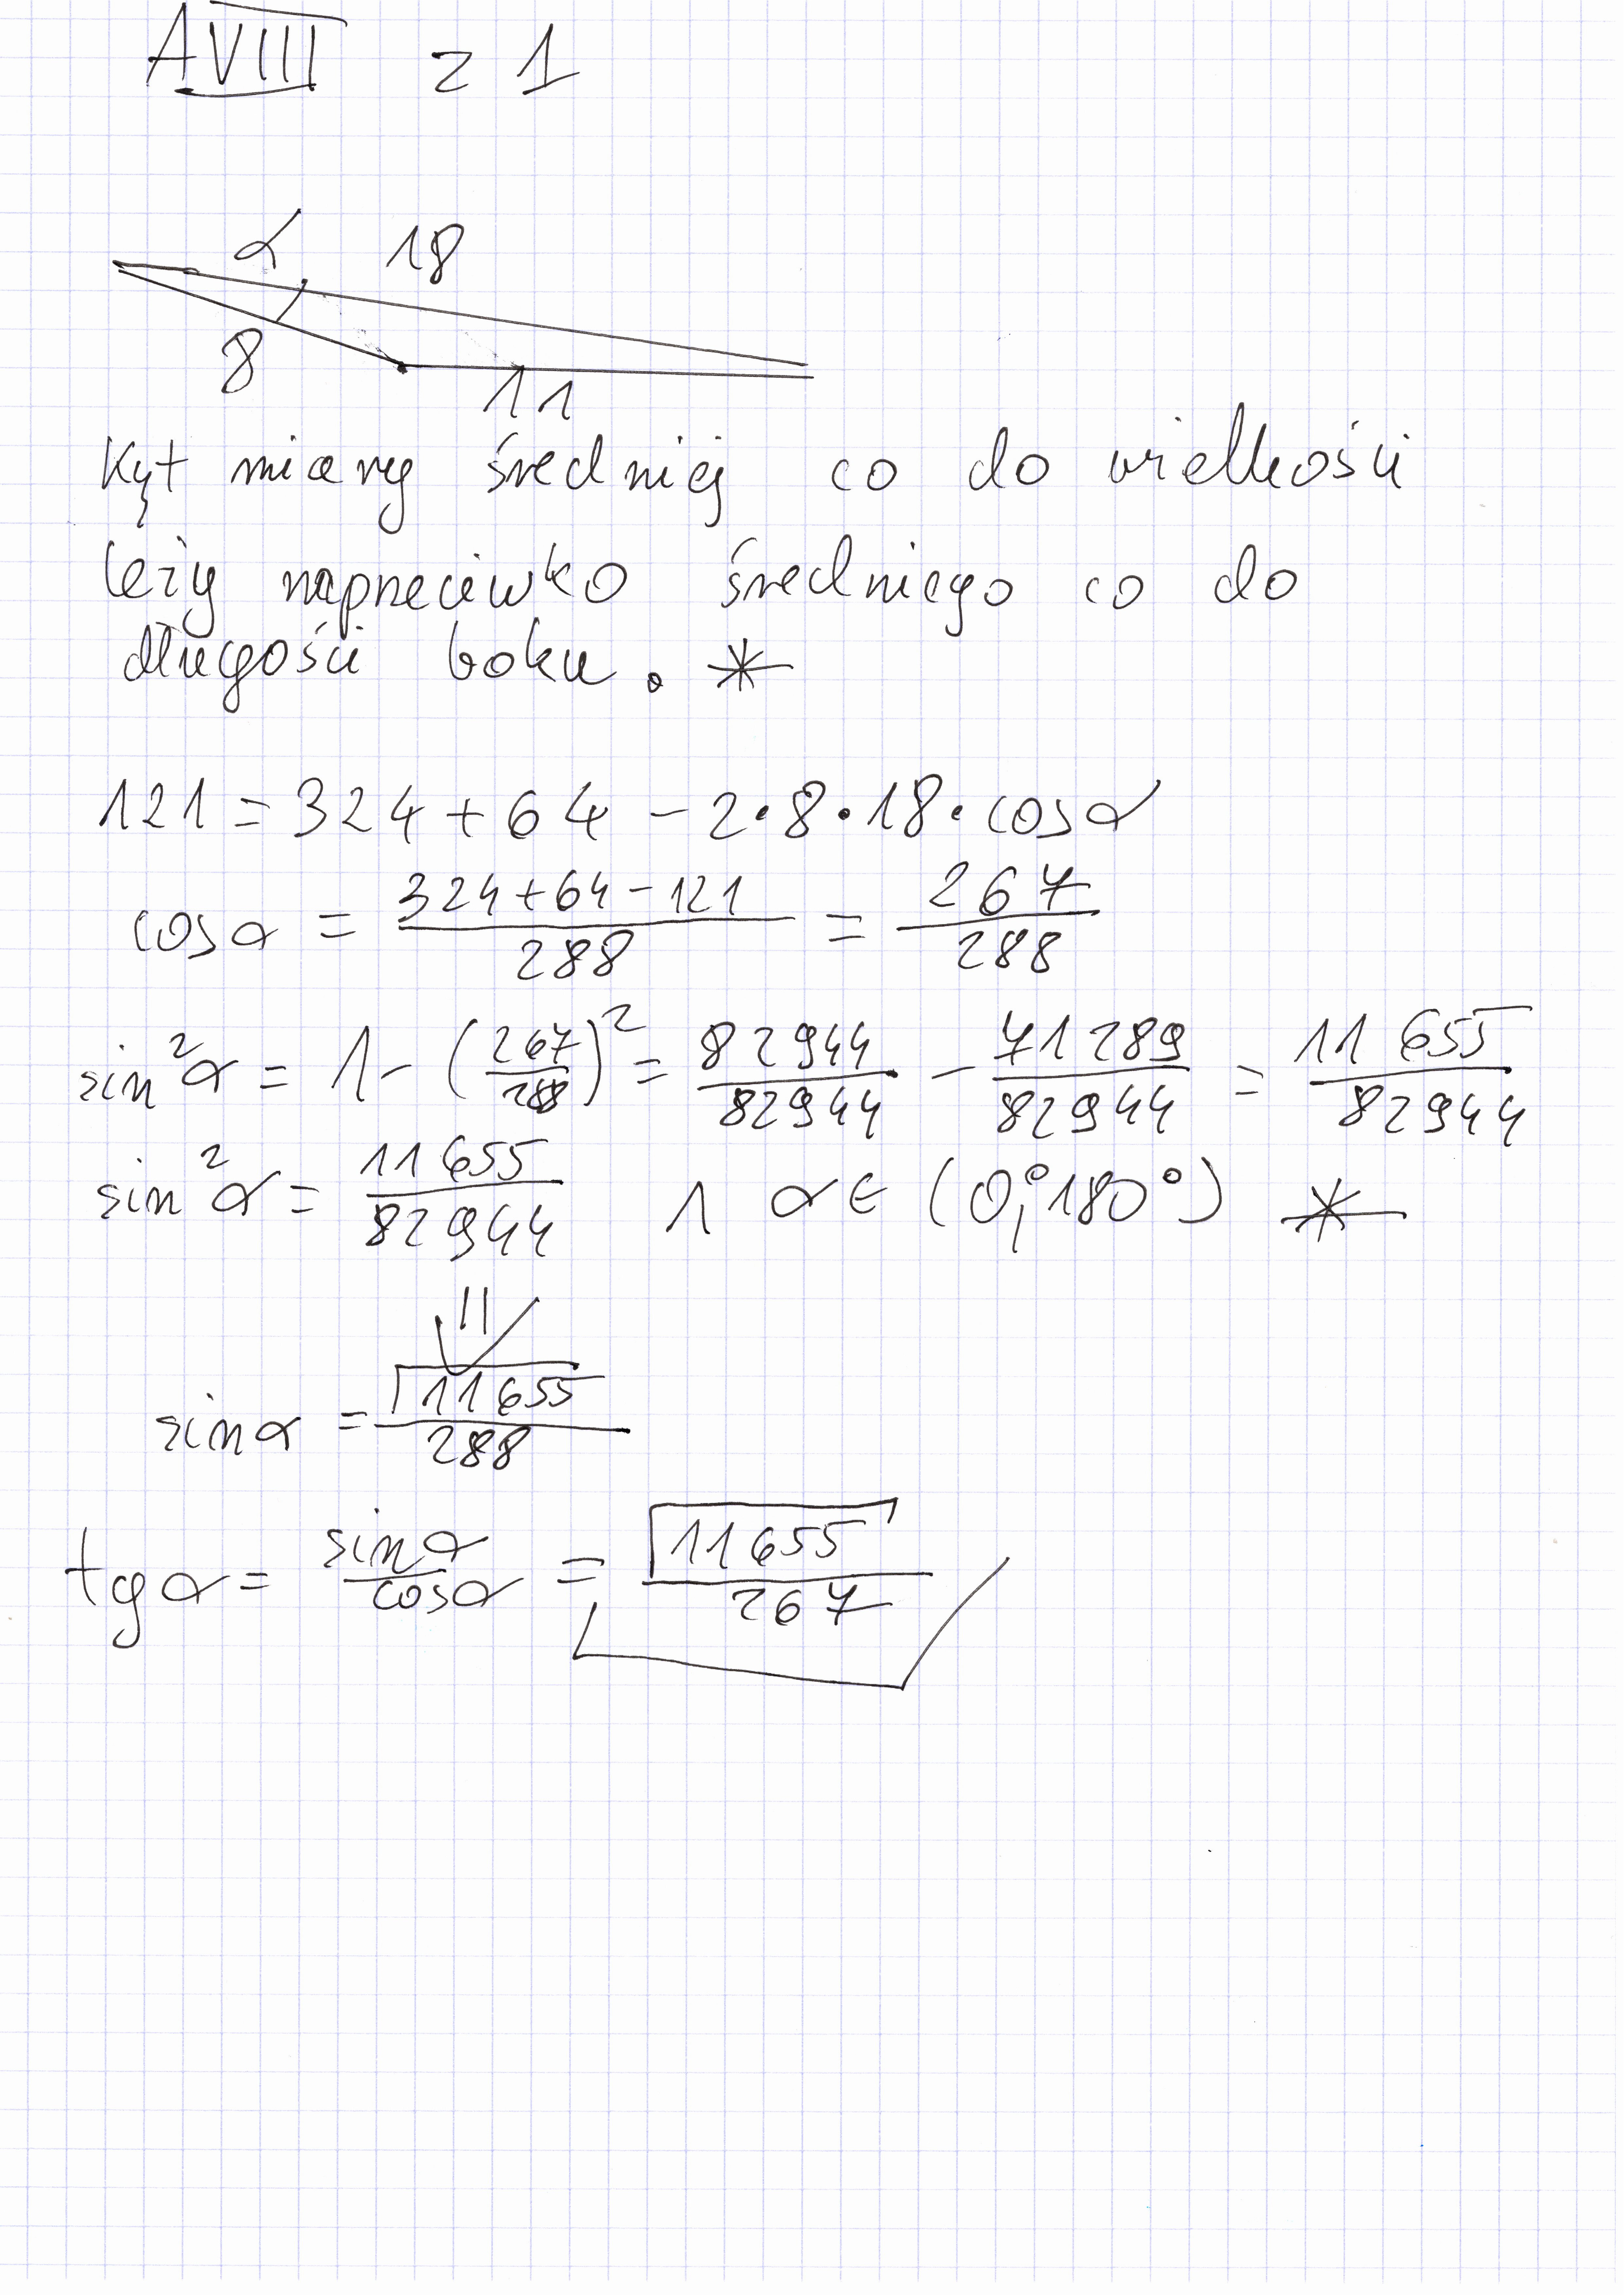 AVIII z 1
α 18
8 11
Kąt miary średniej co do wielkości
leży naprzeciwko średniego co do
długości boku. *
121 = 324 + 64 - 2·8·18·cosα
cosα = (324+64-121)/288 = 267/288
sin²α = 1 - (267/288)² = 82944/82944 - 71289/82944 = 11655/82944
sin²α = 11655/82944 ∧ α ∈ (0°; 180°) *
⇓
sinα = √11655/288
tgα = sinα/cosα = √11655/267